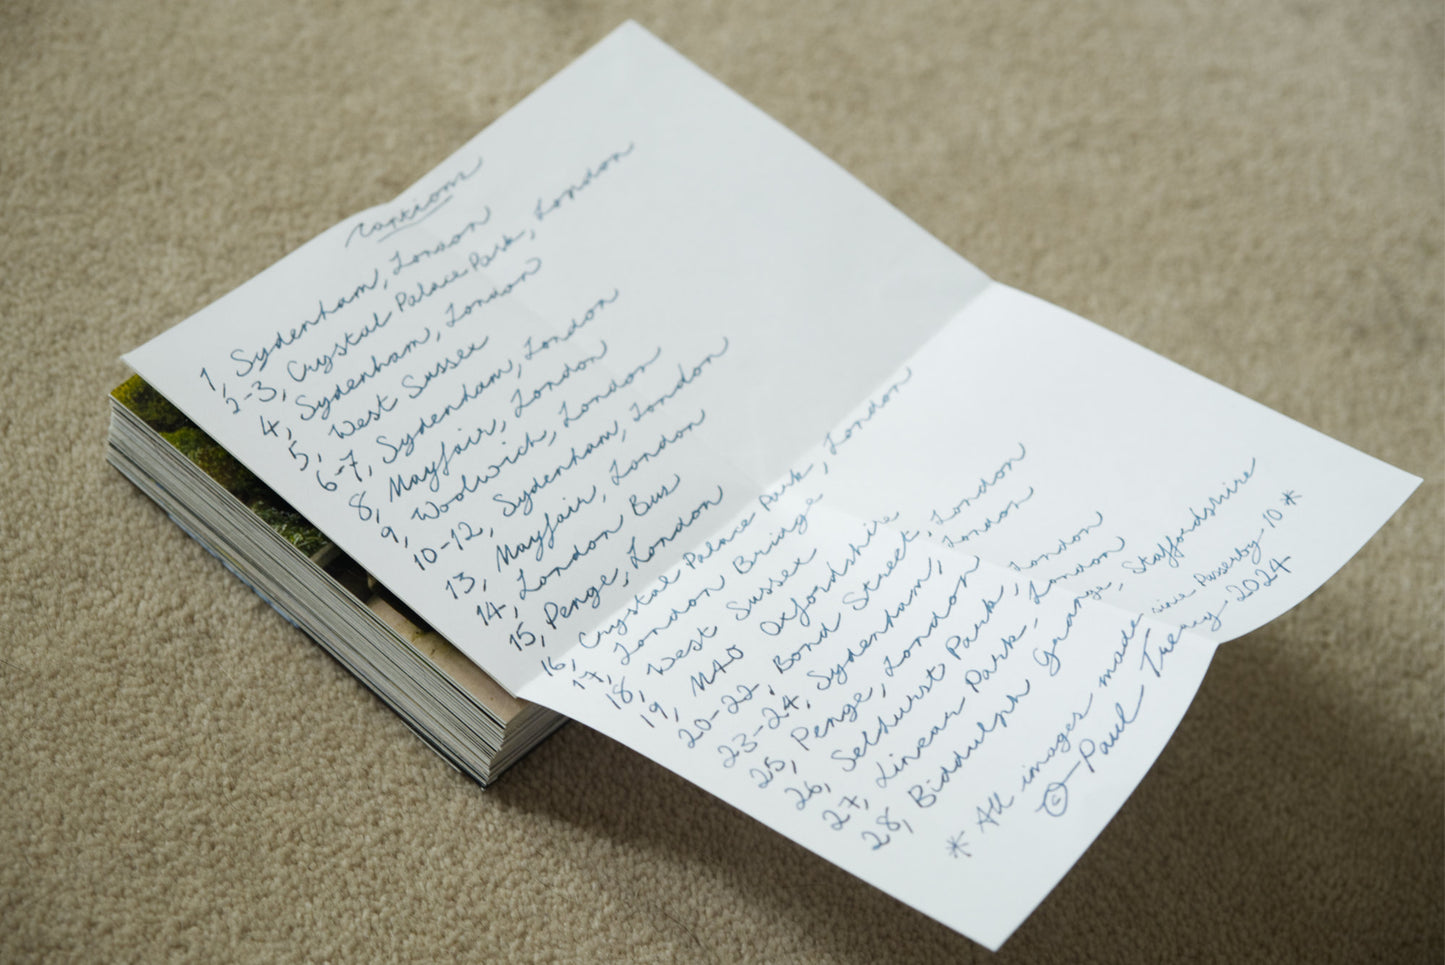 Captions
1, Sydenham, London
2-3, Crystal Palace Park, London
4, Sydenham, London
5, West Sussex
6-7, Sydenham, London
8, Mayfair, London
9, Woolwich, London
10-12, Sydenham, London
13, Mayfair, London
14, London Bus
15, Penge, London
16, Crystal Palace Park, London
17, London Bridge
18, West Sussex
19, M40 Oxfordshire
20-22, Bond Street, London
23-24, Sydenham, London
25, Penge, London
26, Selhurst Park, London
27, Linear Park, London
28, Biddulph Grange, Staffordshire
* All images made since Passerby-10 *
© - Paul - 2024